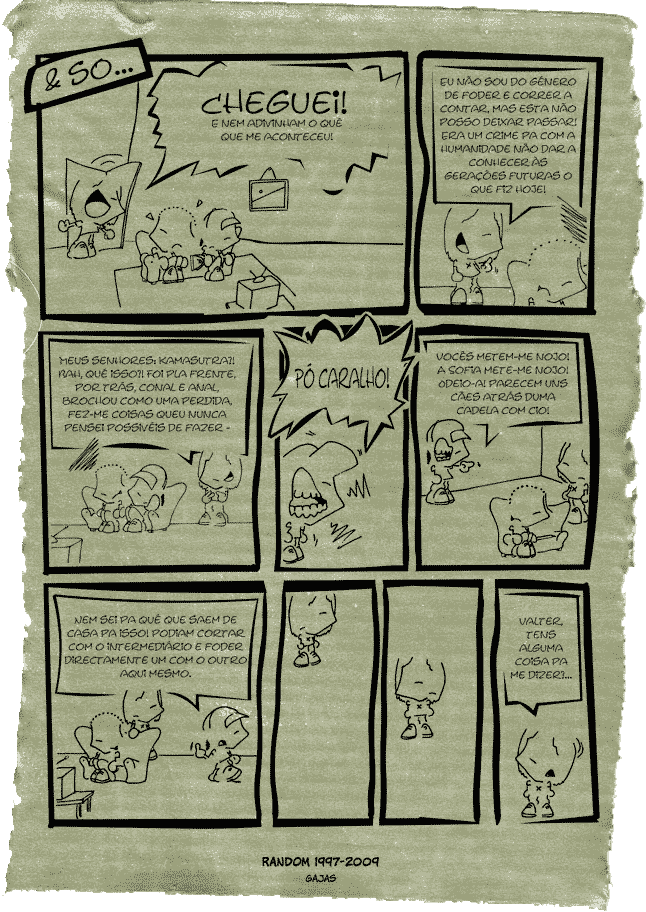 & SO...
CHEGUEI!
E NEM ADIVINHAM O QUÊ
QUE ME ACONTECEU!
EU NÃO SOU DO GÊNERO
DE FODER E CORRER A
CONTAR, MAS ESTA NÃO
POSSO DEIXAR PASSAR!
ERA UM CRIME PA COM A
HUMANIDADE NÃO DAR A
CONHECER ÀS
GERAÇÕES FUTURAS O
QUE FIZ HOJE!
MEUS SENHORES: KAMASUTRA?!
BAH, QUÊ ISSO?! FOI PLA FRENTE,
POR TRÁS, CONAL E ANAL,
BROCHOU COMO UMA PERDIDA,
FEZ-ME COISAS QUEU NUNCA
PENSEI POSSIVÉIS DE FAZER -
PÓ CARALHO!
VOCÊS METEM-ME NOJO!
A SOFIA METE-ME NOJO!
ODEIO-A! PARECEM UNS
CÃES ATRÁS DUMA
CADELA COM CIO!
NEM SEI PA QUÊ QUE SAEM DE
CASA PA ISSO! PODIAM CORTAR
COM O INTERMEDIÁRIO E FODER
DIRECTAMENTE UM COM O OUTRO
AQUI MESMO.
VALTER,
TENS
ALGUMA
COISA PA
ME DIZER?...
RANDOM 1997-2009
GAJAS